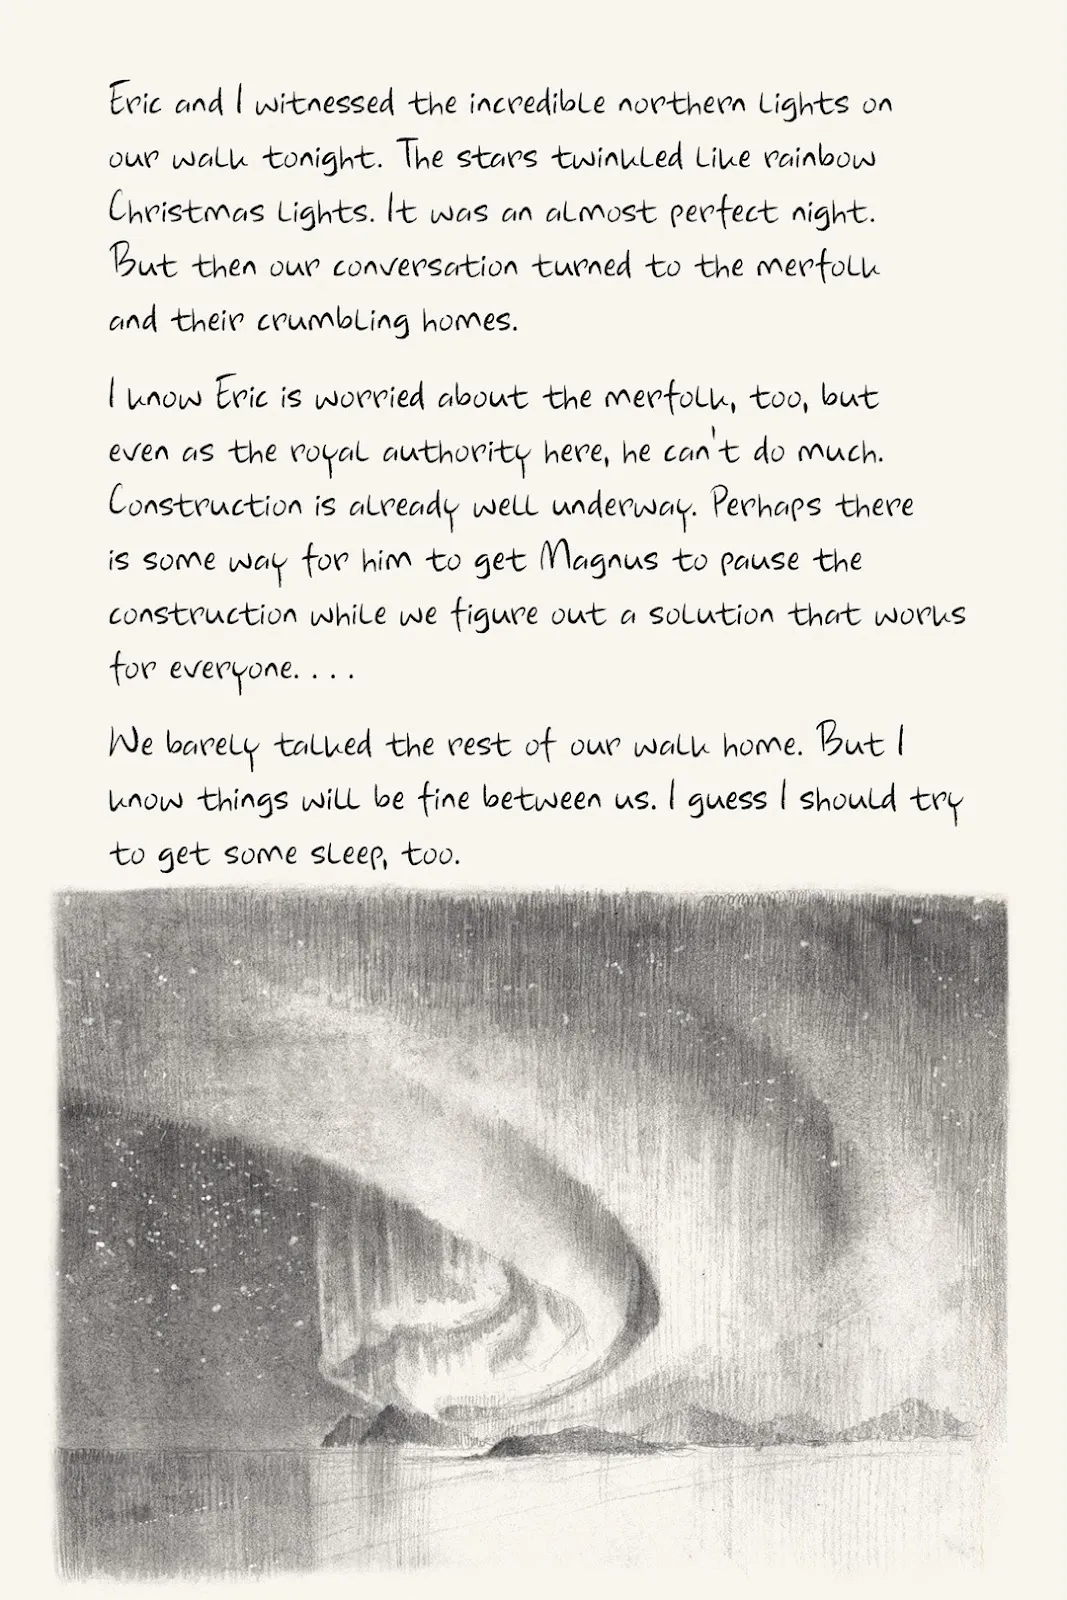 Eric and I witnessed the incredible northern lights on
our walk tonight. The stars twinkled like rainbow
Christmas lights. It was an almost perfect night.
But then our conversation turned to the merfolk
and their crumbling homes.
I know Eric is worried about the merfolk, too, but
even as the royal authority here, he can't do much.
Construction is already well underway. Perhaps there
is some way for him to get Magnus to pause the
construction while we figure out a solution that works
for everyone. . . .
We barely talked the rest of our walk home. But I
know things will be fine between us. I guess I should try
to get some sleep, too.